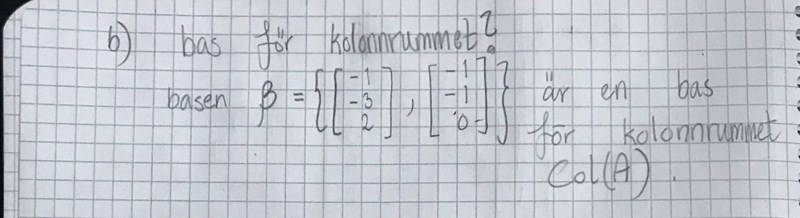 b) bas för kolonnrummet?
basen β = {[-1 -3 2], [-1 -1 0]} är en bas
för kolonnrummet
Col(A).